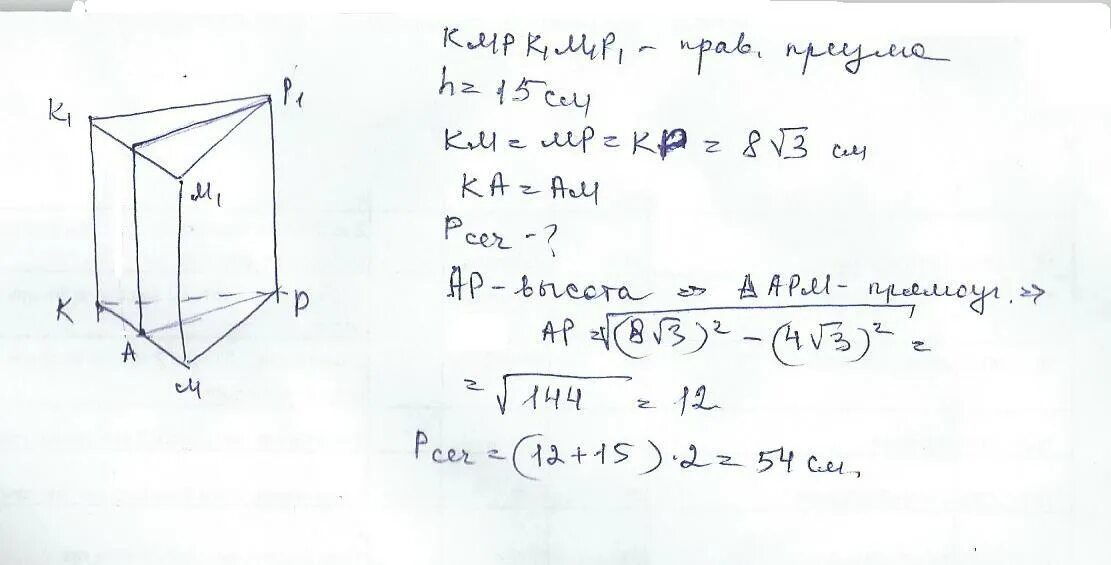 K₁
P₁
M₁
K
P
A
M
KMP K₁M₁P₁ - прав. призма
h = 15 см
KM = MP = KP = 8√3 см
KA = AM
Pсеч - ?
AP - высота ⇒ Δ APM - прямоуг. ⇒
AP = √(8√3)² - (4√3)² =
= √144 = 12
Pсеч = (12 + 15) · 2 = 54 см.